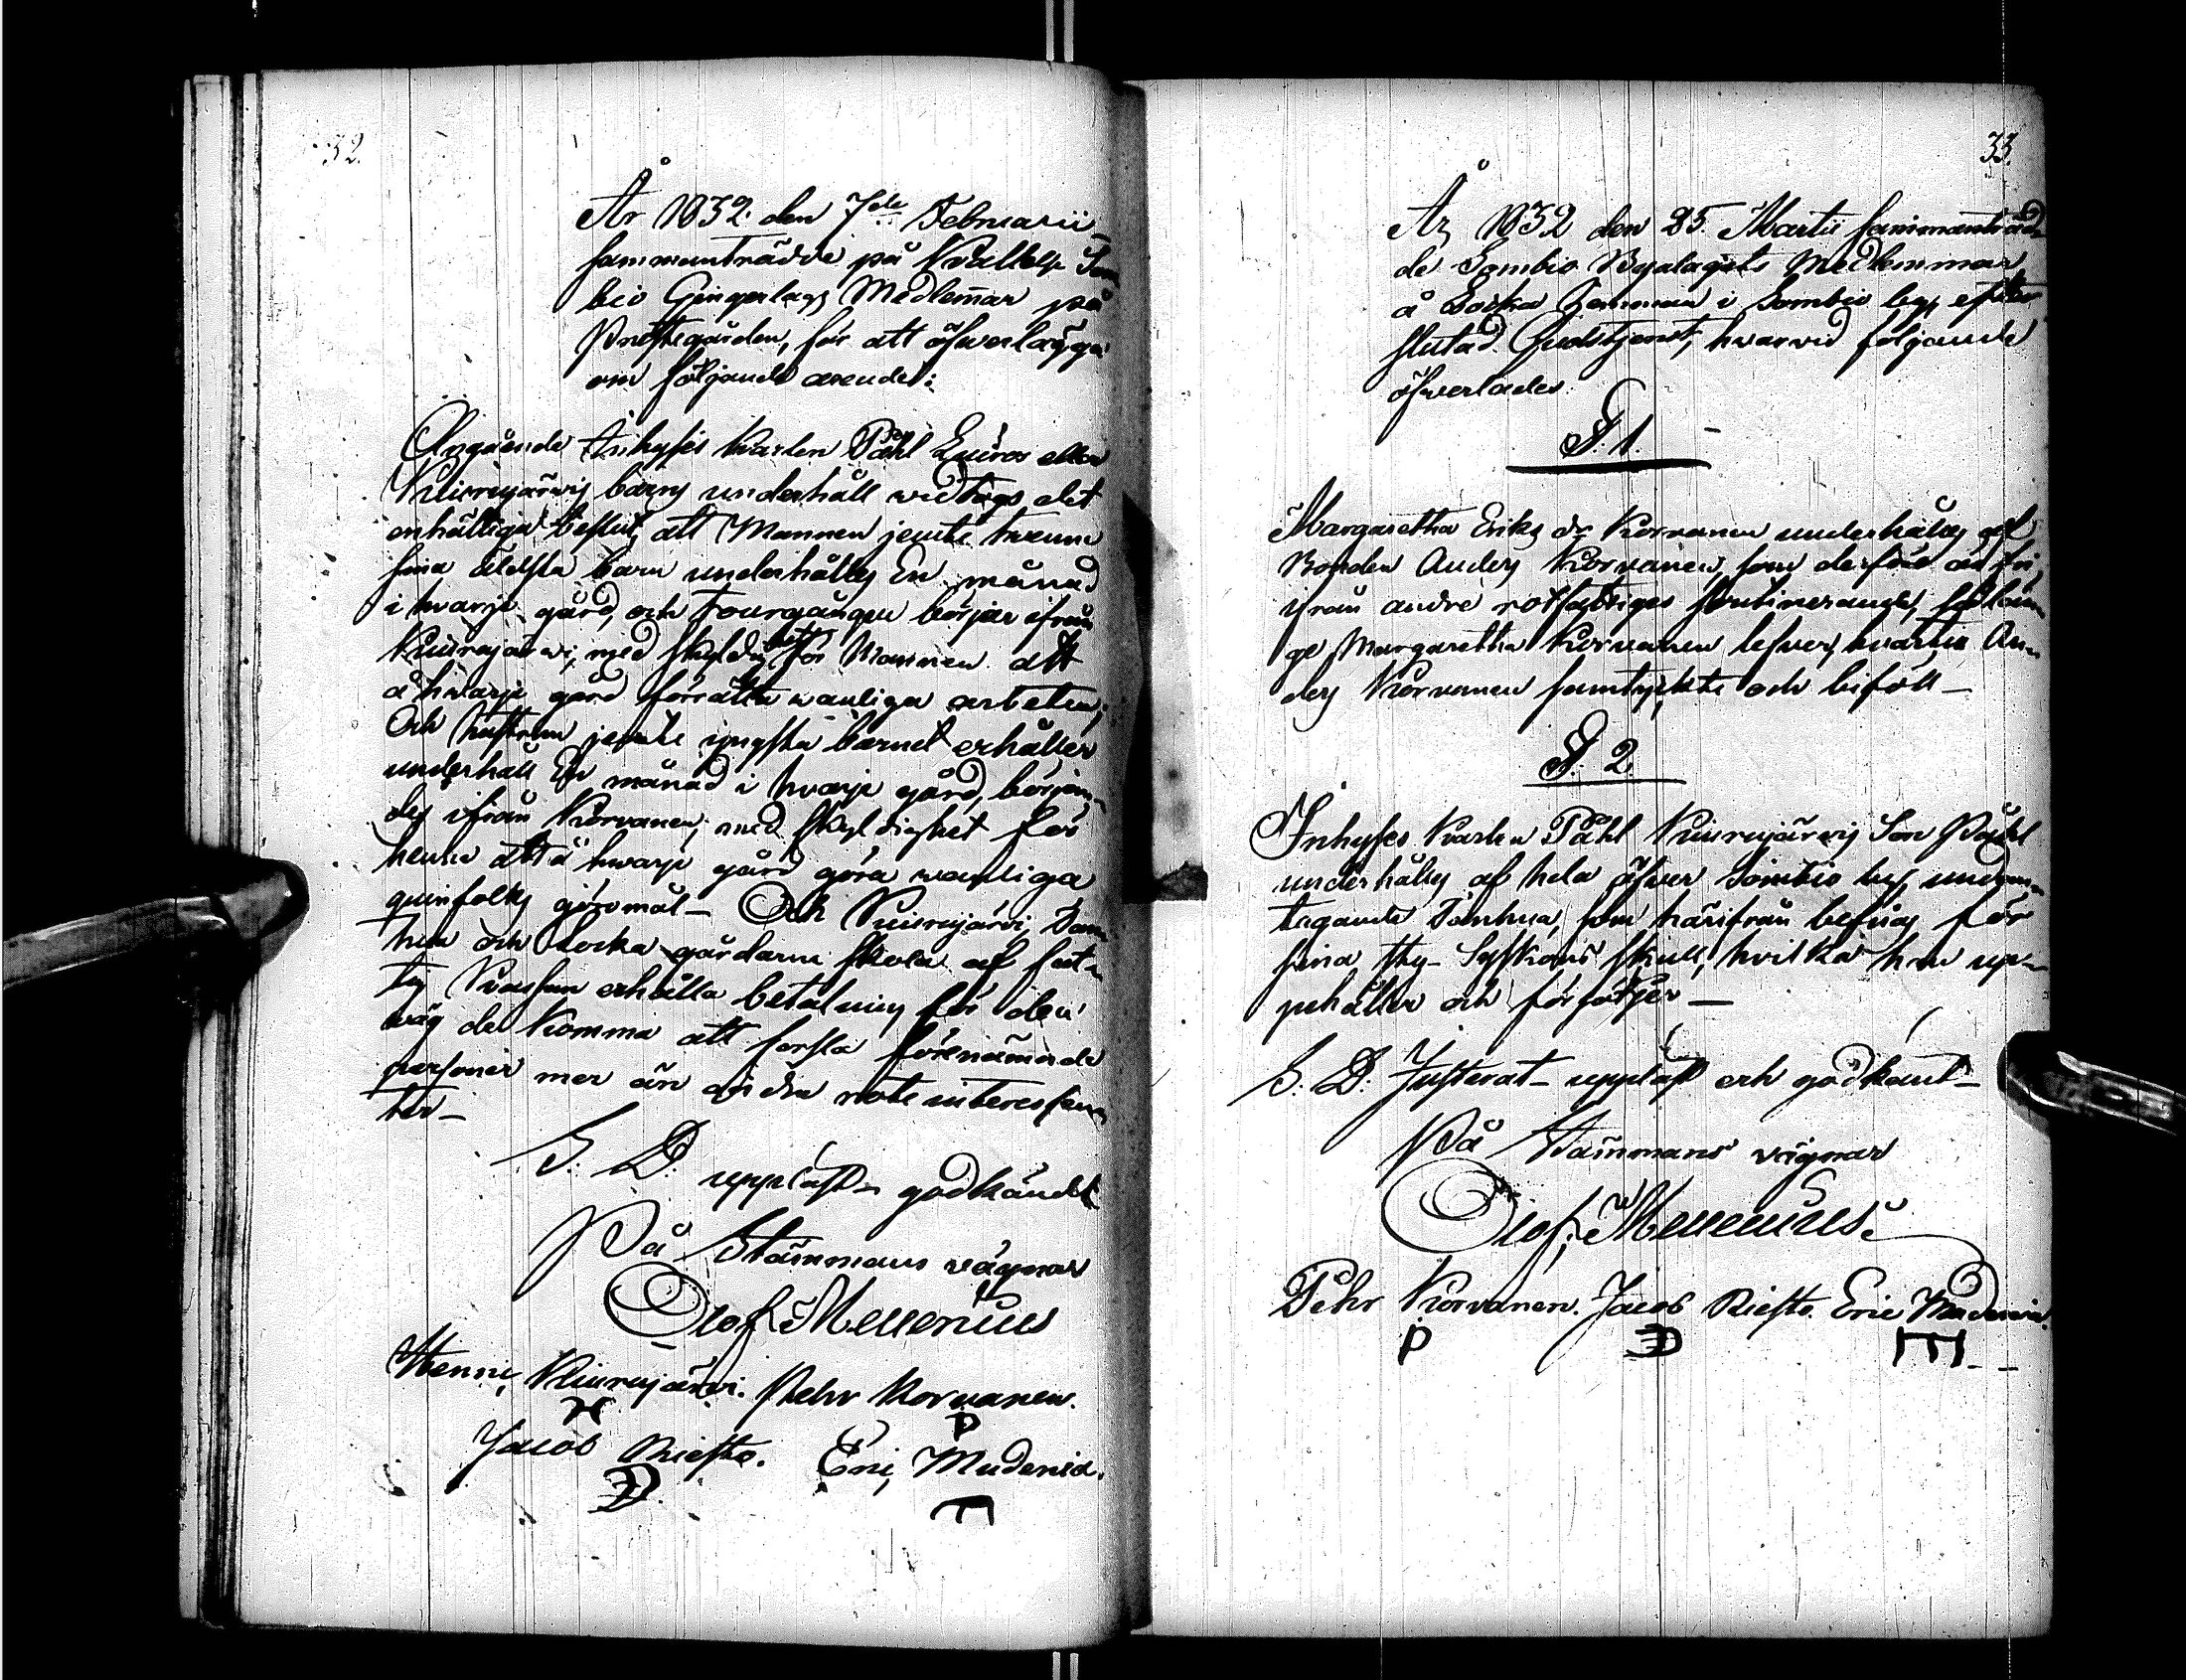 32.
År 1832. den 7de Februarii
sammanträdde på Kallelse Som
bio Gingerlags Medlemar på
Prestegården, för att öfverlägga
om följande ärende:
Angående Inhyses Karlen Påhl
Kiurujärvis barns underhåll vidtogs det
enhälliga beslut, att Mannen jemte tvenne
sina äldsta barn underhålles En månad
i hvarje gård, och tourgången börjas ifrån
Kiurujärvi, med skyldighet för Mannen att
å hvarje gård förrätta vanliga arbeten;
Och hustrun jemte yngsta barnet erhåller
underhåll En månad i hvarje gård, början-
des ifrån Korvanen, med skyldighet för
henne att å hvarje gård göra vanliga
quinfolks göromål – Och Kiurujärvi, Tan
hua och Locka gårdarne skola af fat-
tig Kassan erhålla betalning för den
väg de komma att forsla förenämnde
personer mer än andra rote interessen
ter –
S. D. uppläst – godkändt
På Stämmans vägnar
Olof Mellenius
Henric Kiurujärvi. Pehr Korvanen.
H P
Jacob Riesto. Eric Mudenia.
33.
År 1832 den 25. Martii sammanträd
de Sombio Byalagets Medlemmar
å Locka Hemman i Sombio by, efter
slutad Gudstjenst, hvarvid följande
öfverlades.
§. 1.
Margaretha Eriks dr Korvanen underhålles af
Bonden Anders Korvanen, som derföre är fri
ifrån andre rotfattiges, så län
ge Margaretha Korvanen lefver, hvartil An
ders Korvanen samtyckte och biföll –
§. 2.
Inhyses Karlen Påhl Kiurujärvis Son Påhl
underhålles af hela öfver Sombio by, undan
tagande Tanhua, som härifrån befrias för
sina Syskons skull, hvilka han up-
pehåller och försörjer –
S. D. Justerat – uppläst och godkänt –
På Stämmans vägnar
Olof Mellenius.
Pehr Korvanen. Jacob Riesto. Eric Mudenia.
P